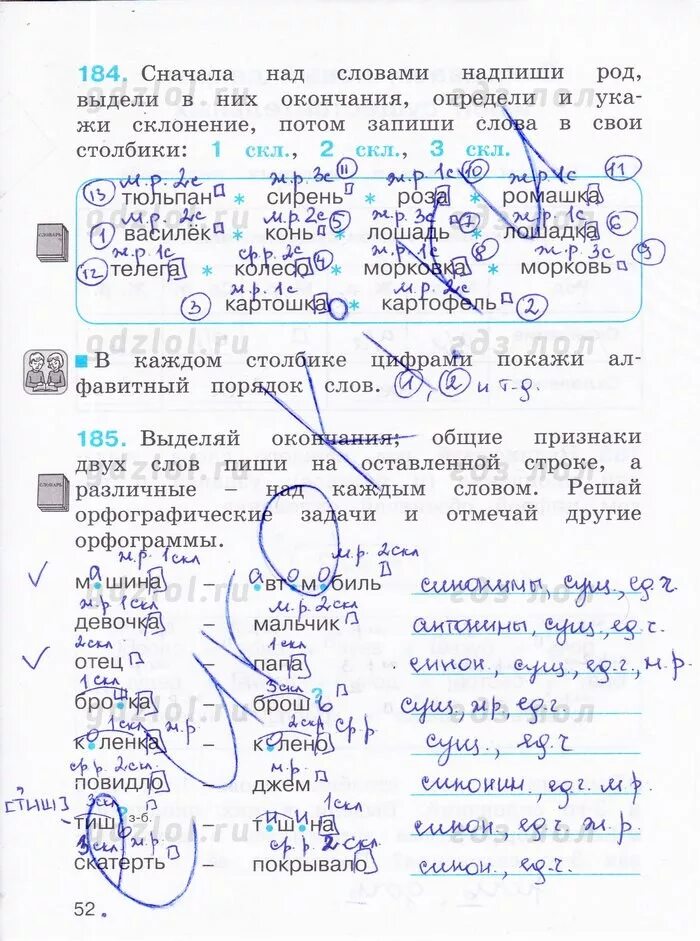 184. Сначала над словами надпиши род,
выдели в них окончания, определи и ука-
жи склонение, потом запиши слова в свои
столбики: 1 скл., 2 скл., 3 скл.
м.р. 2с ж.р. 3с 11 ж.р. 1с 10 ж.р. 1с 11
13 тюльпан * сирень * роза * ромашка
м.р. 2с м.р. 2с ж.р. 3с ж.р. 1с
1 василёк * конь 5 * лошадь 7 * лошадка 6
ж.р. 1с ср.р. 2с ж.р. 1с 8 ж.р. 3с 9
12 телега * колесо 4 * морковка * морковь
ж.р. 1с м.р. 2с
3 картошка * картофель 2
В каждом столбике цифрами покажи ал-
фавитный порядок слов. 1, 2 и т.д.
185. Выделяй окончания; общие признаки
двух слов пиши на оставленной строке, а
различные – над каждым словом. Решай
орфографические задачи и отмечай другие
орфограммы.
ж.р. 1скл м.р. 2скл
машина – автомобиль синонимы, сущ., ед.ч.
ж.р. 1скл м.р. 2скл
девочка – мальчик антонимы, сущ., ед.ч.
2скл 1скл
отец – папа синон., сущ., ед.ч., м.р.
1скл 3скл
брошка – брошь сущ., жр, ед.ч.
1скл ж.р. 2скл ср.р.
коленка – колено сущ., ед.ч
ср.р. 2скл. м.р.
повидло – джем синоним, ед.ч. м.р.
[тиш] 3скл 1скл
тишь з-б. – тишина синон, ед.ч. ж.р.
3скл ж.р. ср.р. 2скл.
скатерть – покрывало синон., ед.ч.
52